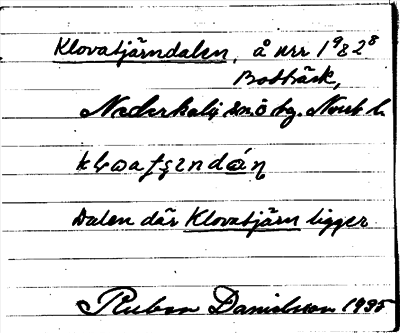 Klovatjärndalen, å nrr 1⁹82⁸
Bottbäck,
Nederkalix snö tg. Norrb. l.
Dalen där Klovatjärn ligger
Ruben Danielsson 1935